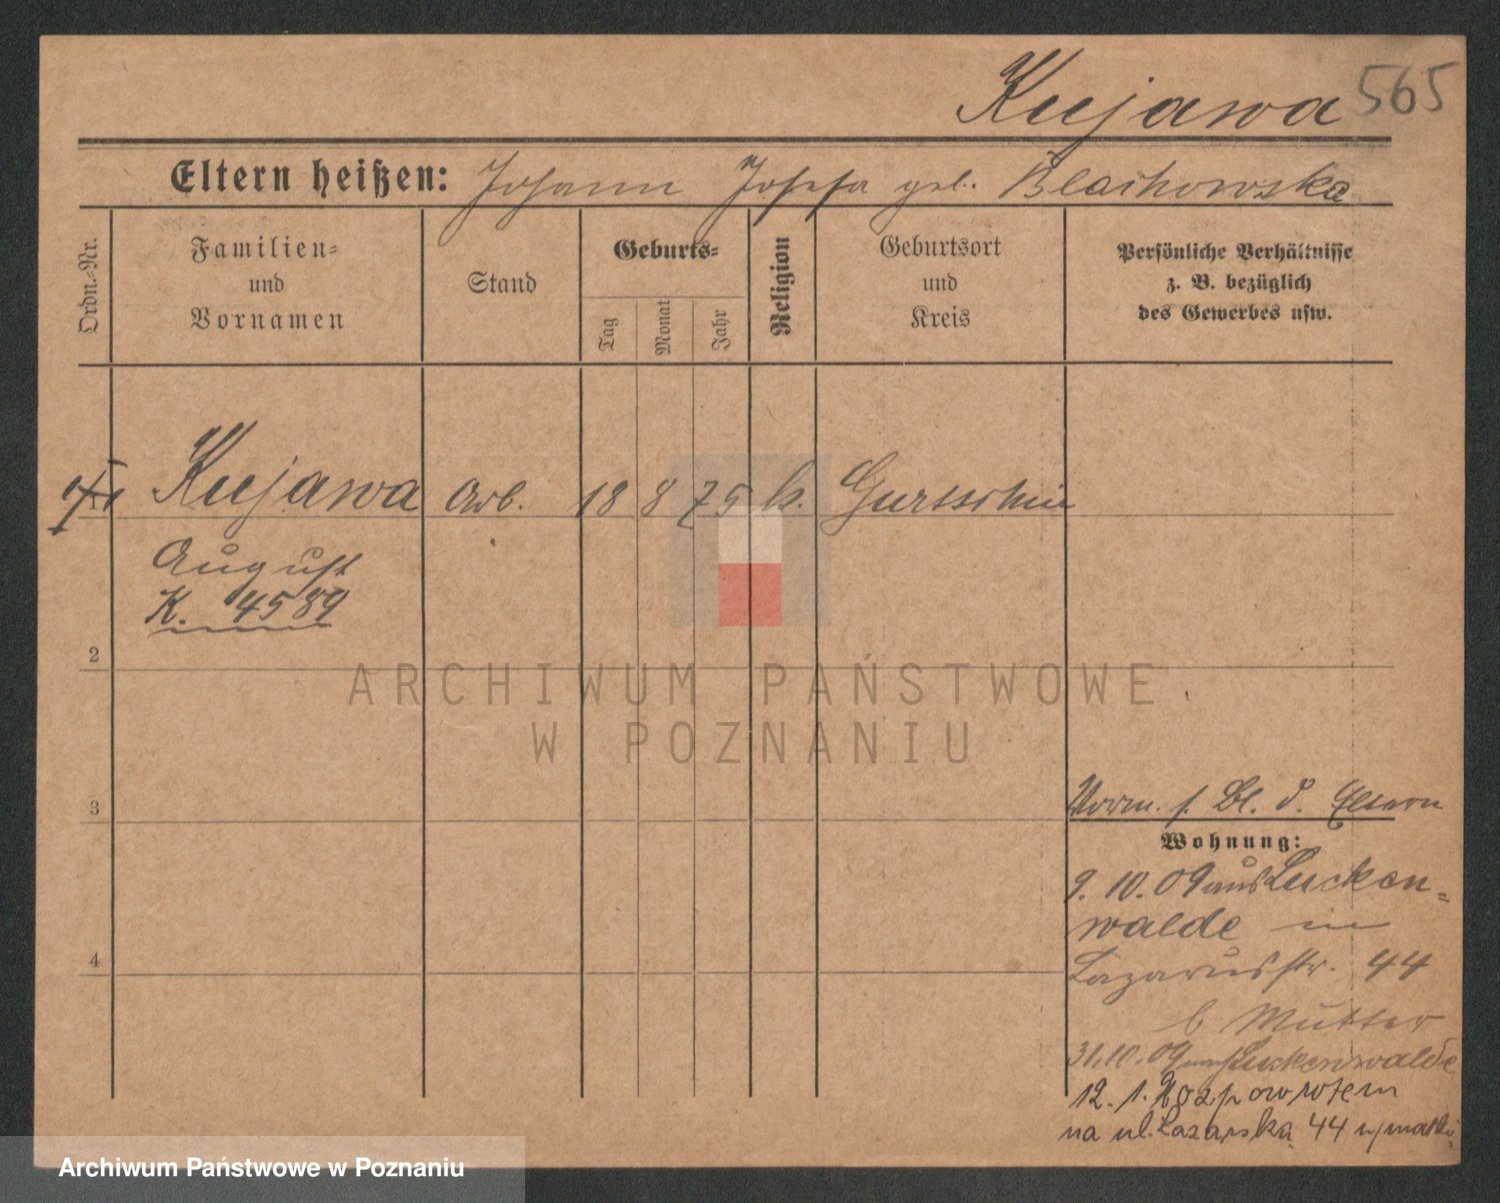 Kujawa 565
Eltern heißen: Johann Josefa geb. Blachowska
Ordn.-Nr.
Familien-
und
Vornamen
Stand
Geburts-
Tag
Monat
Jahr
Religion
Geburtsort
und
Kreis
Persönliche Verhältnisse
z. B. bezüglich
des Gewerbes usw.
1 Kujawa Arb. 18 8 75 k. Gurtschin
August
K. 4589
2
ARCHIWUM PAŃSTWOWE
W POZNANIU
3
Vorm. s. Bl. d. Eltern
Wohnung:
9. 10. 09 aus Lucken-
walde in
Lazarusstr. 44
4
b Mutter
31.10.09 nach Luckenwalde
12. 1. z powrotem
na ul. Łazarską 44 u matki
Archiwum Państwowe w Poznaniu